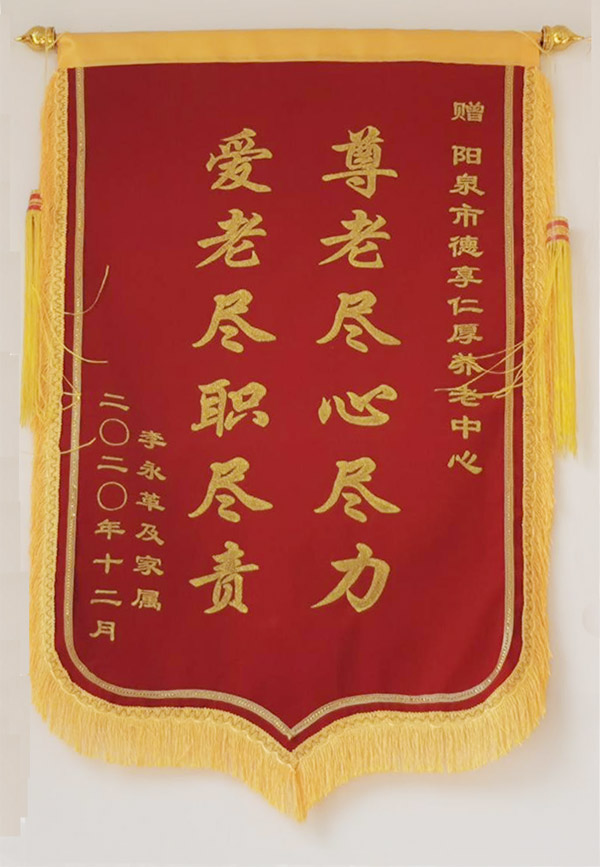 赠 阳泉市德享仁厚养老中心
尊老尽心尽力
爱老尽职尽责
李永革及家属
二〇二〇年十二月